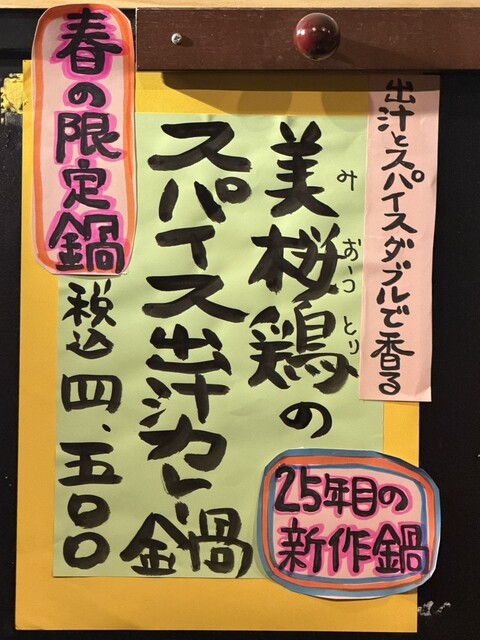 出汁とスパイスダブルで香る
美桜鶏の
み おう とり
スパイス出汁カレー鍋
春の限定鍋
税込四、五〇〇
25年目の
新作鍋